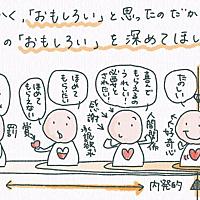 かく、「おもしろい」と思ったのだか
の「おもしろい」を深めてほし
たのしい!
好奇心
喜んで
もらえるの
うれしい!
必要と
されたい。
人間関係
感謝
承認欲求
ほめて
もらいたい
賞
ほめて
もらえない
罰
内発的